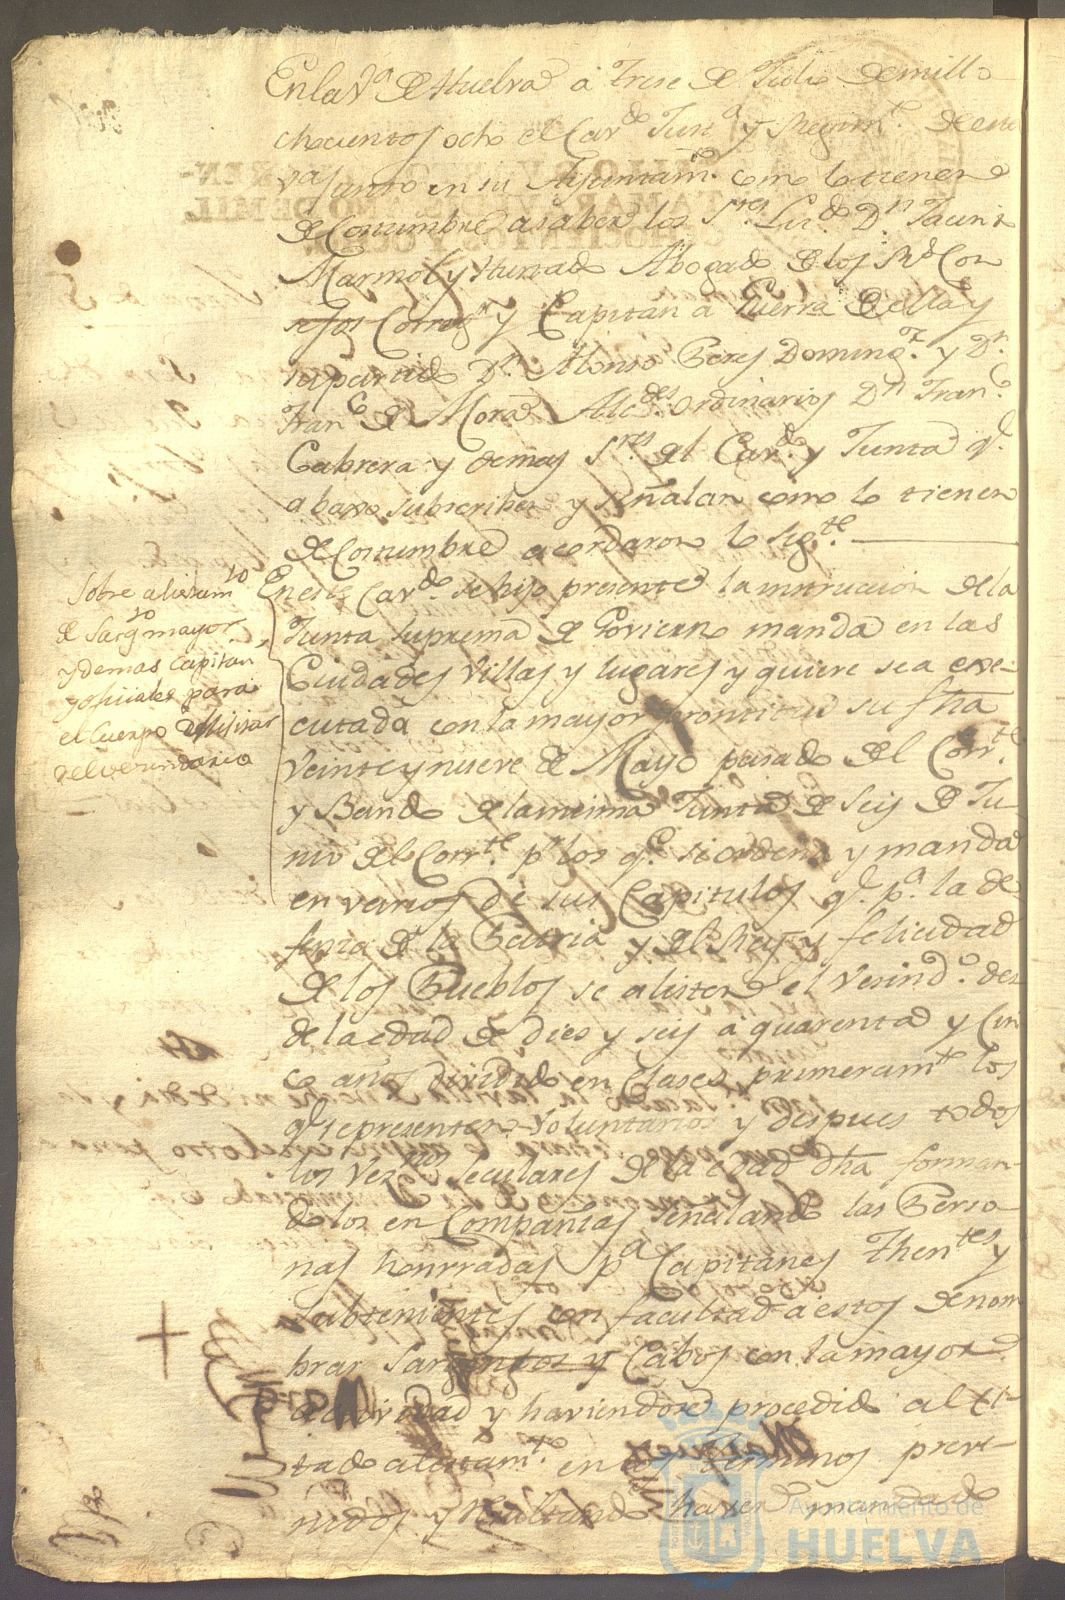 En la Va. de Huelva á trese de Julio de mill o
chocientos ocho el Cavdo. Justa. y Regimto. de esta
va. junto en su Ayuntamto. como lo tienen
de Costumbre asaber los Sres. Licdo. Dn. Jacinto
Marmol y Hurtado Abogado de los Rs. Con
sejos Corregr. y Capitan a Guerra de ella y
su partido Dn. Alonso Peres Domingz. y Dn.
Franco. de Mora Alcdes. Ordinarios Dn. Franco.
Cabrera y demas Sres. del Cavdo. y Junta qe.
abaxo subscriben y señalan como lo tienen
de Costumbre acordaron lo sigte.
Sobre alistamto.
de Sargto. mayor
y demas Capitan
y oficiales para
el Cuerpo Militar
del vecindario
En este Cavdo. se hizo presente la instrucion de la
Junta Suprema de Govierno manda en las
Ciudades Villas y lugares y quiere sea exe-
cutada con la mayor prontitud su fha
Veinte y nueve de Mayo pasado del Corrte.
y Bando de la misma Junta de Seis de Ju
nio del Corrte. pr. los qe. se ordena y manda
en varios de sus Capitulos qe. pa. la de
fensa de la Patria y del Rey y felicidad
de los Pueblos se alisten el Vesindo. des
de la edad de dies y seis a quarenta y Cin
co años dividido en Clases primeramte. los
qe. se presenten Voluntarios y despues todos
los Vesnos. seculares de la edad dha forman-
dolos en Compañias señalando las Perso
nas honrradas pa. Capitanes Thentes. y
Subtenientes con facultad a estos de nom
brar Sargentos y Cabos con la mayor
actividad y haviendose procedido al ci-
tado alistamto. en los terminos preve-
nidos y resultando haver mandado
Ayuntamiento de
HUELVA